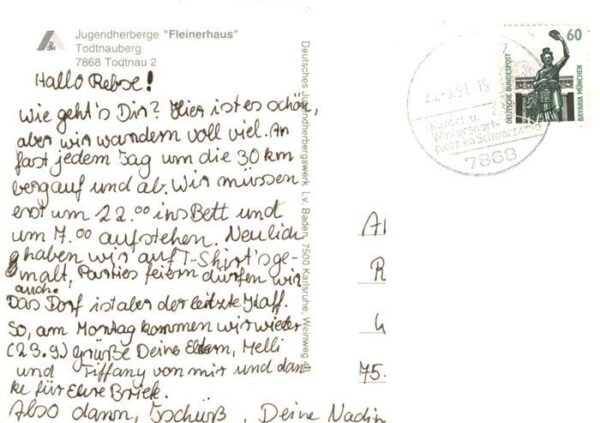 Jugendherberge "Fleinerhaus"
Todtnauberg
7868 Todtnau 2
Hallo Rebse!
Wie geht's Dir? Hier ist es schön,
aber wir wandern voll viel. An
fast jedem Tag um die 30 km
bergauf und ab. Wir müssen
erst um 22.00 ins Bett und
um 7.00 aufstehen. Neulich
haben wir auf T-Shirt's ge-
malt, Parties feiern dürfen wir
auch.
Das Dorf ist aber der letzte Kaff.
So, am Montag kommen wir wieder
(23.9.) grüße Deine Eltern, Melli
und Tiffany von mir und dan
ke für Eure Briefe.
Also dann, Tschüß, Deine Nadin
Deutsches Jugendherbergswerk Lv. Baden, 7500 Karlsruhe, Weinweg
91-15
Kurort u.
Wintersport-
platz im Schwarzwald
7868
60
DEUTSCHE BUNDESPOST
BAVARIA MÜNCHEN
A
R
75.